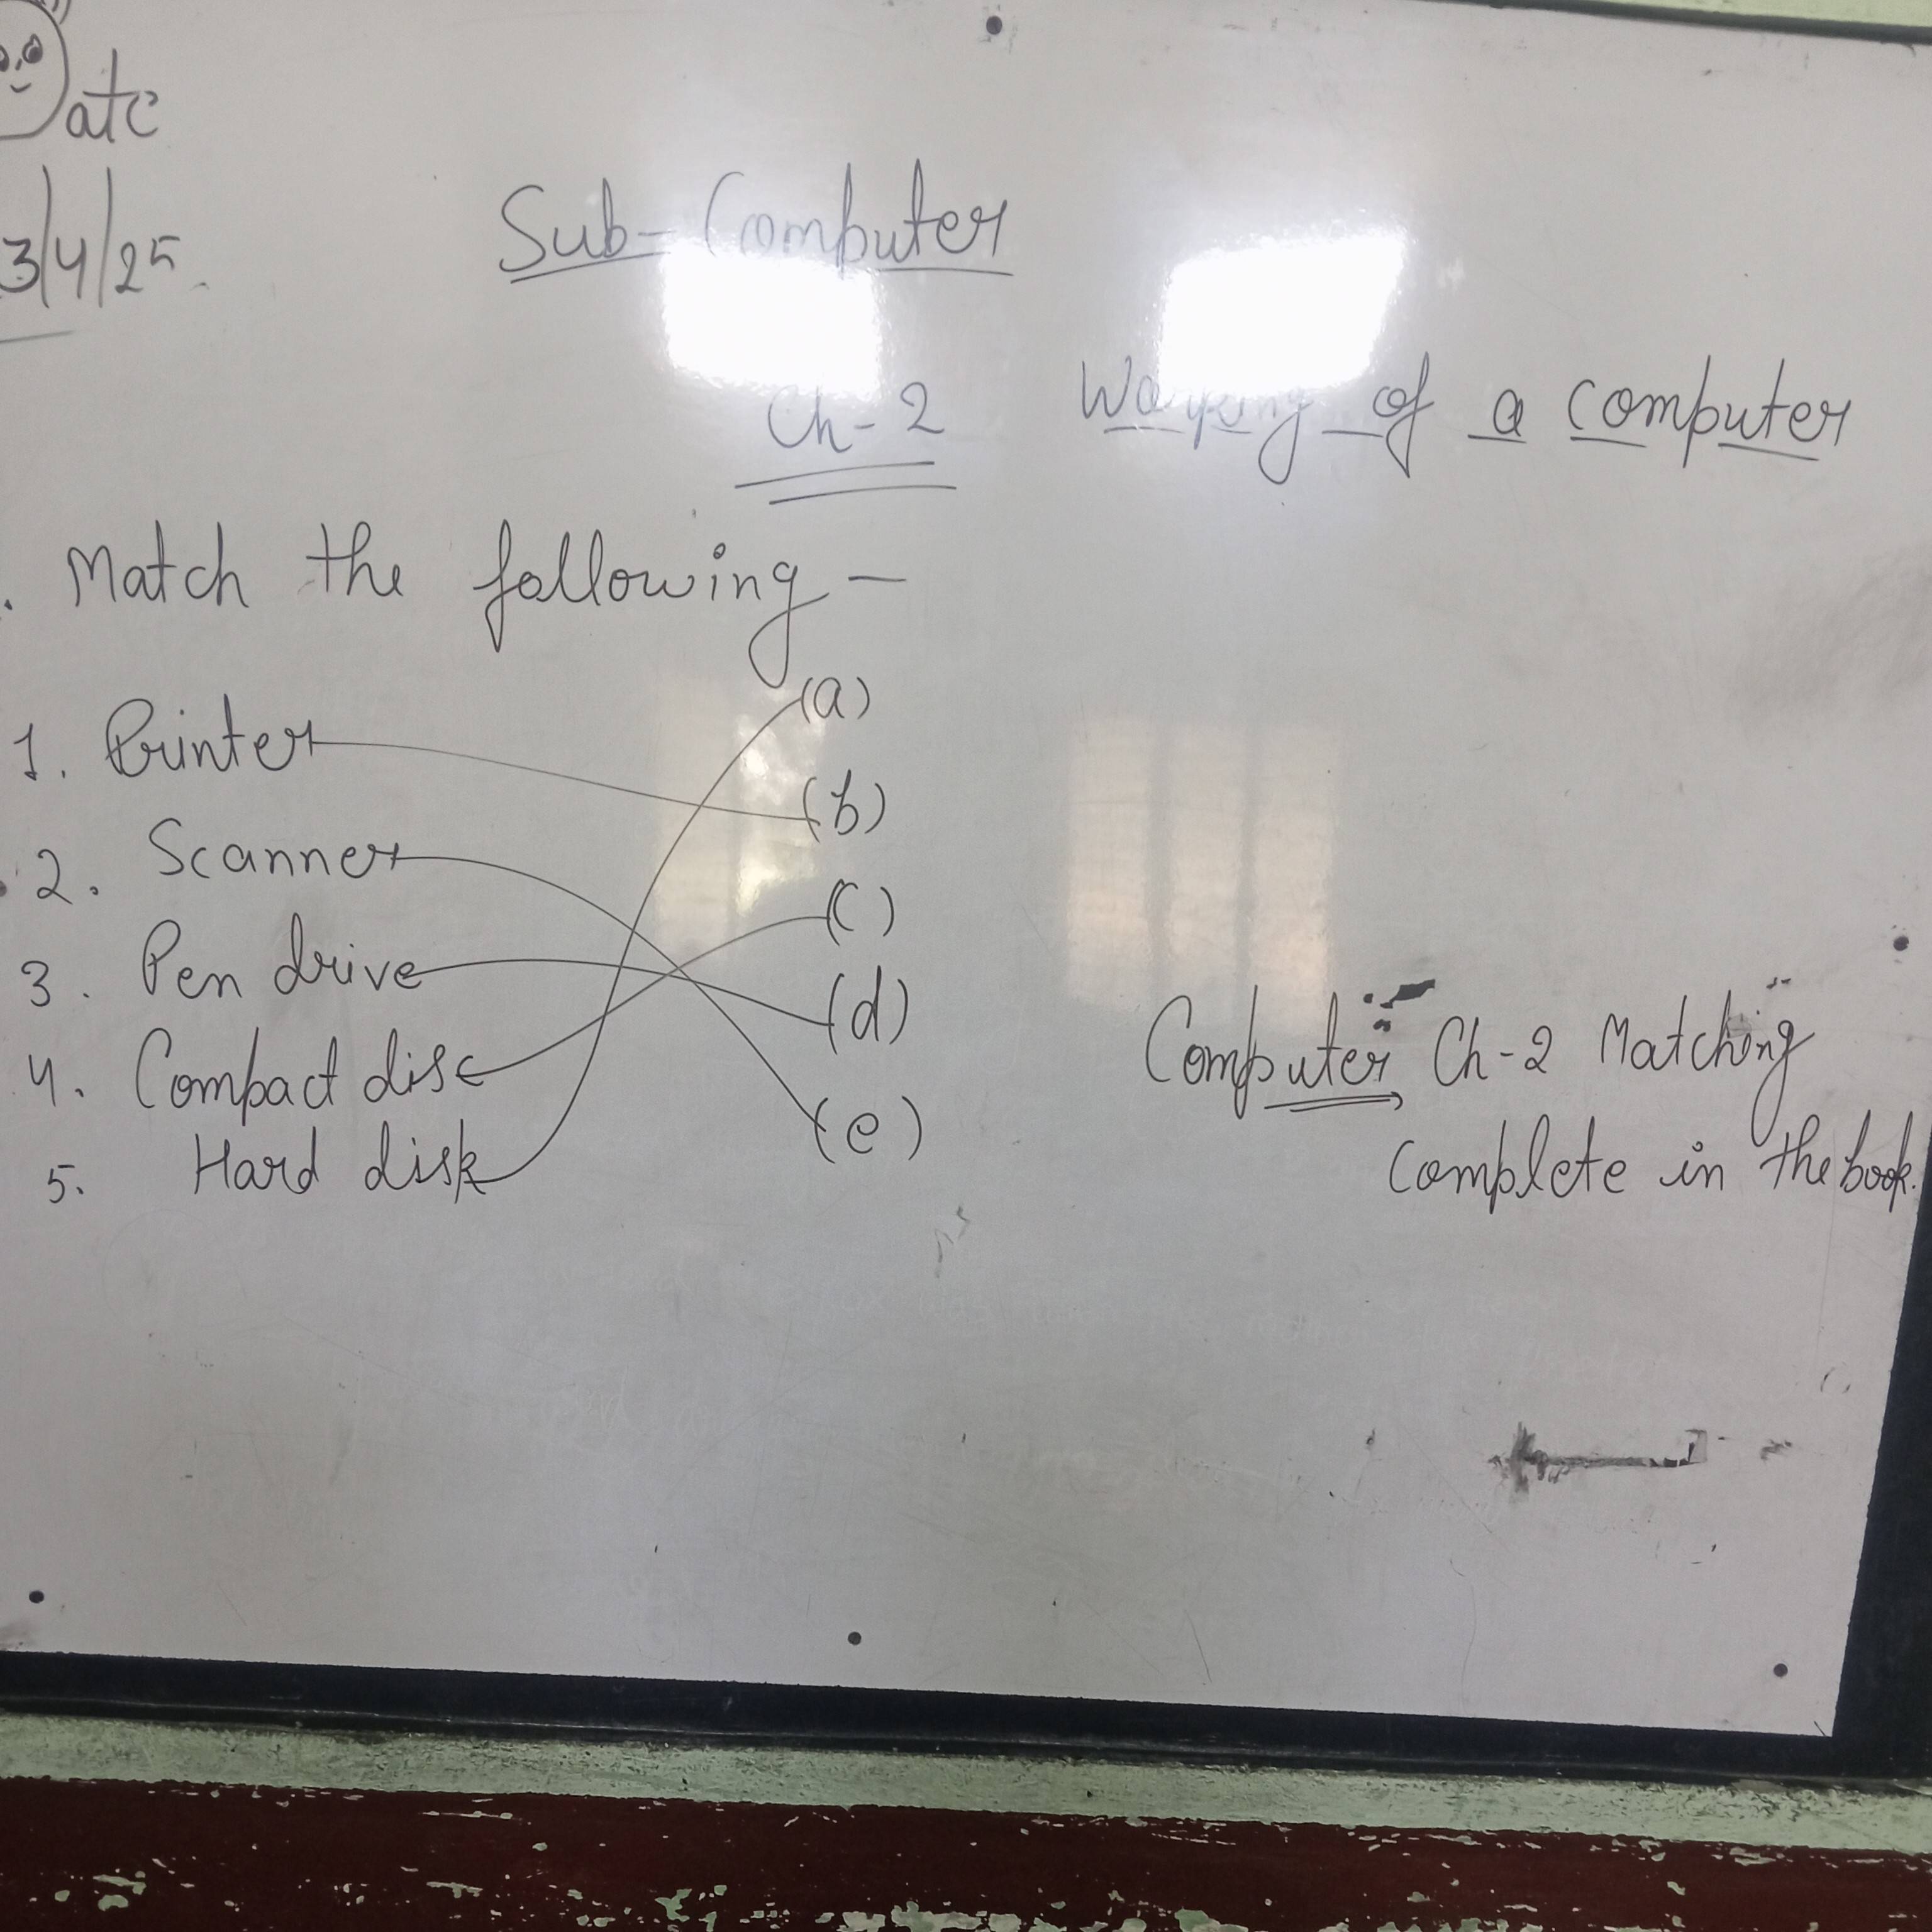 Date
3/4/25.
Sub- Computer
Ch-2 Working of a computer
. Match the following -
1. Printer (a)
2. Scanner (b)
3. Pen drive (c)
4. Compact disc (d)
5. Hard disk (e)
Computer Ch-2 Matching
Complete in the book.